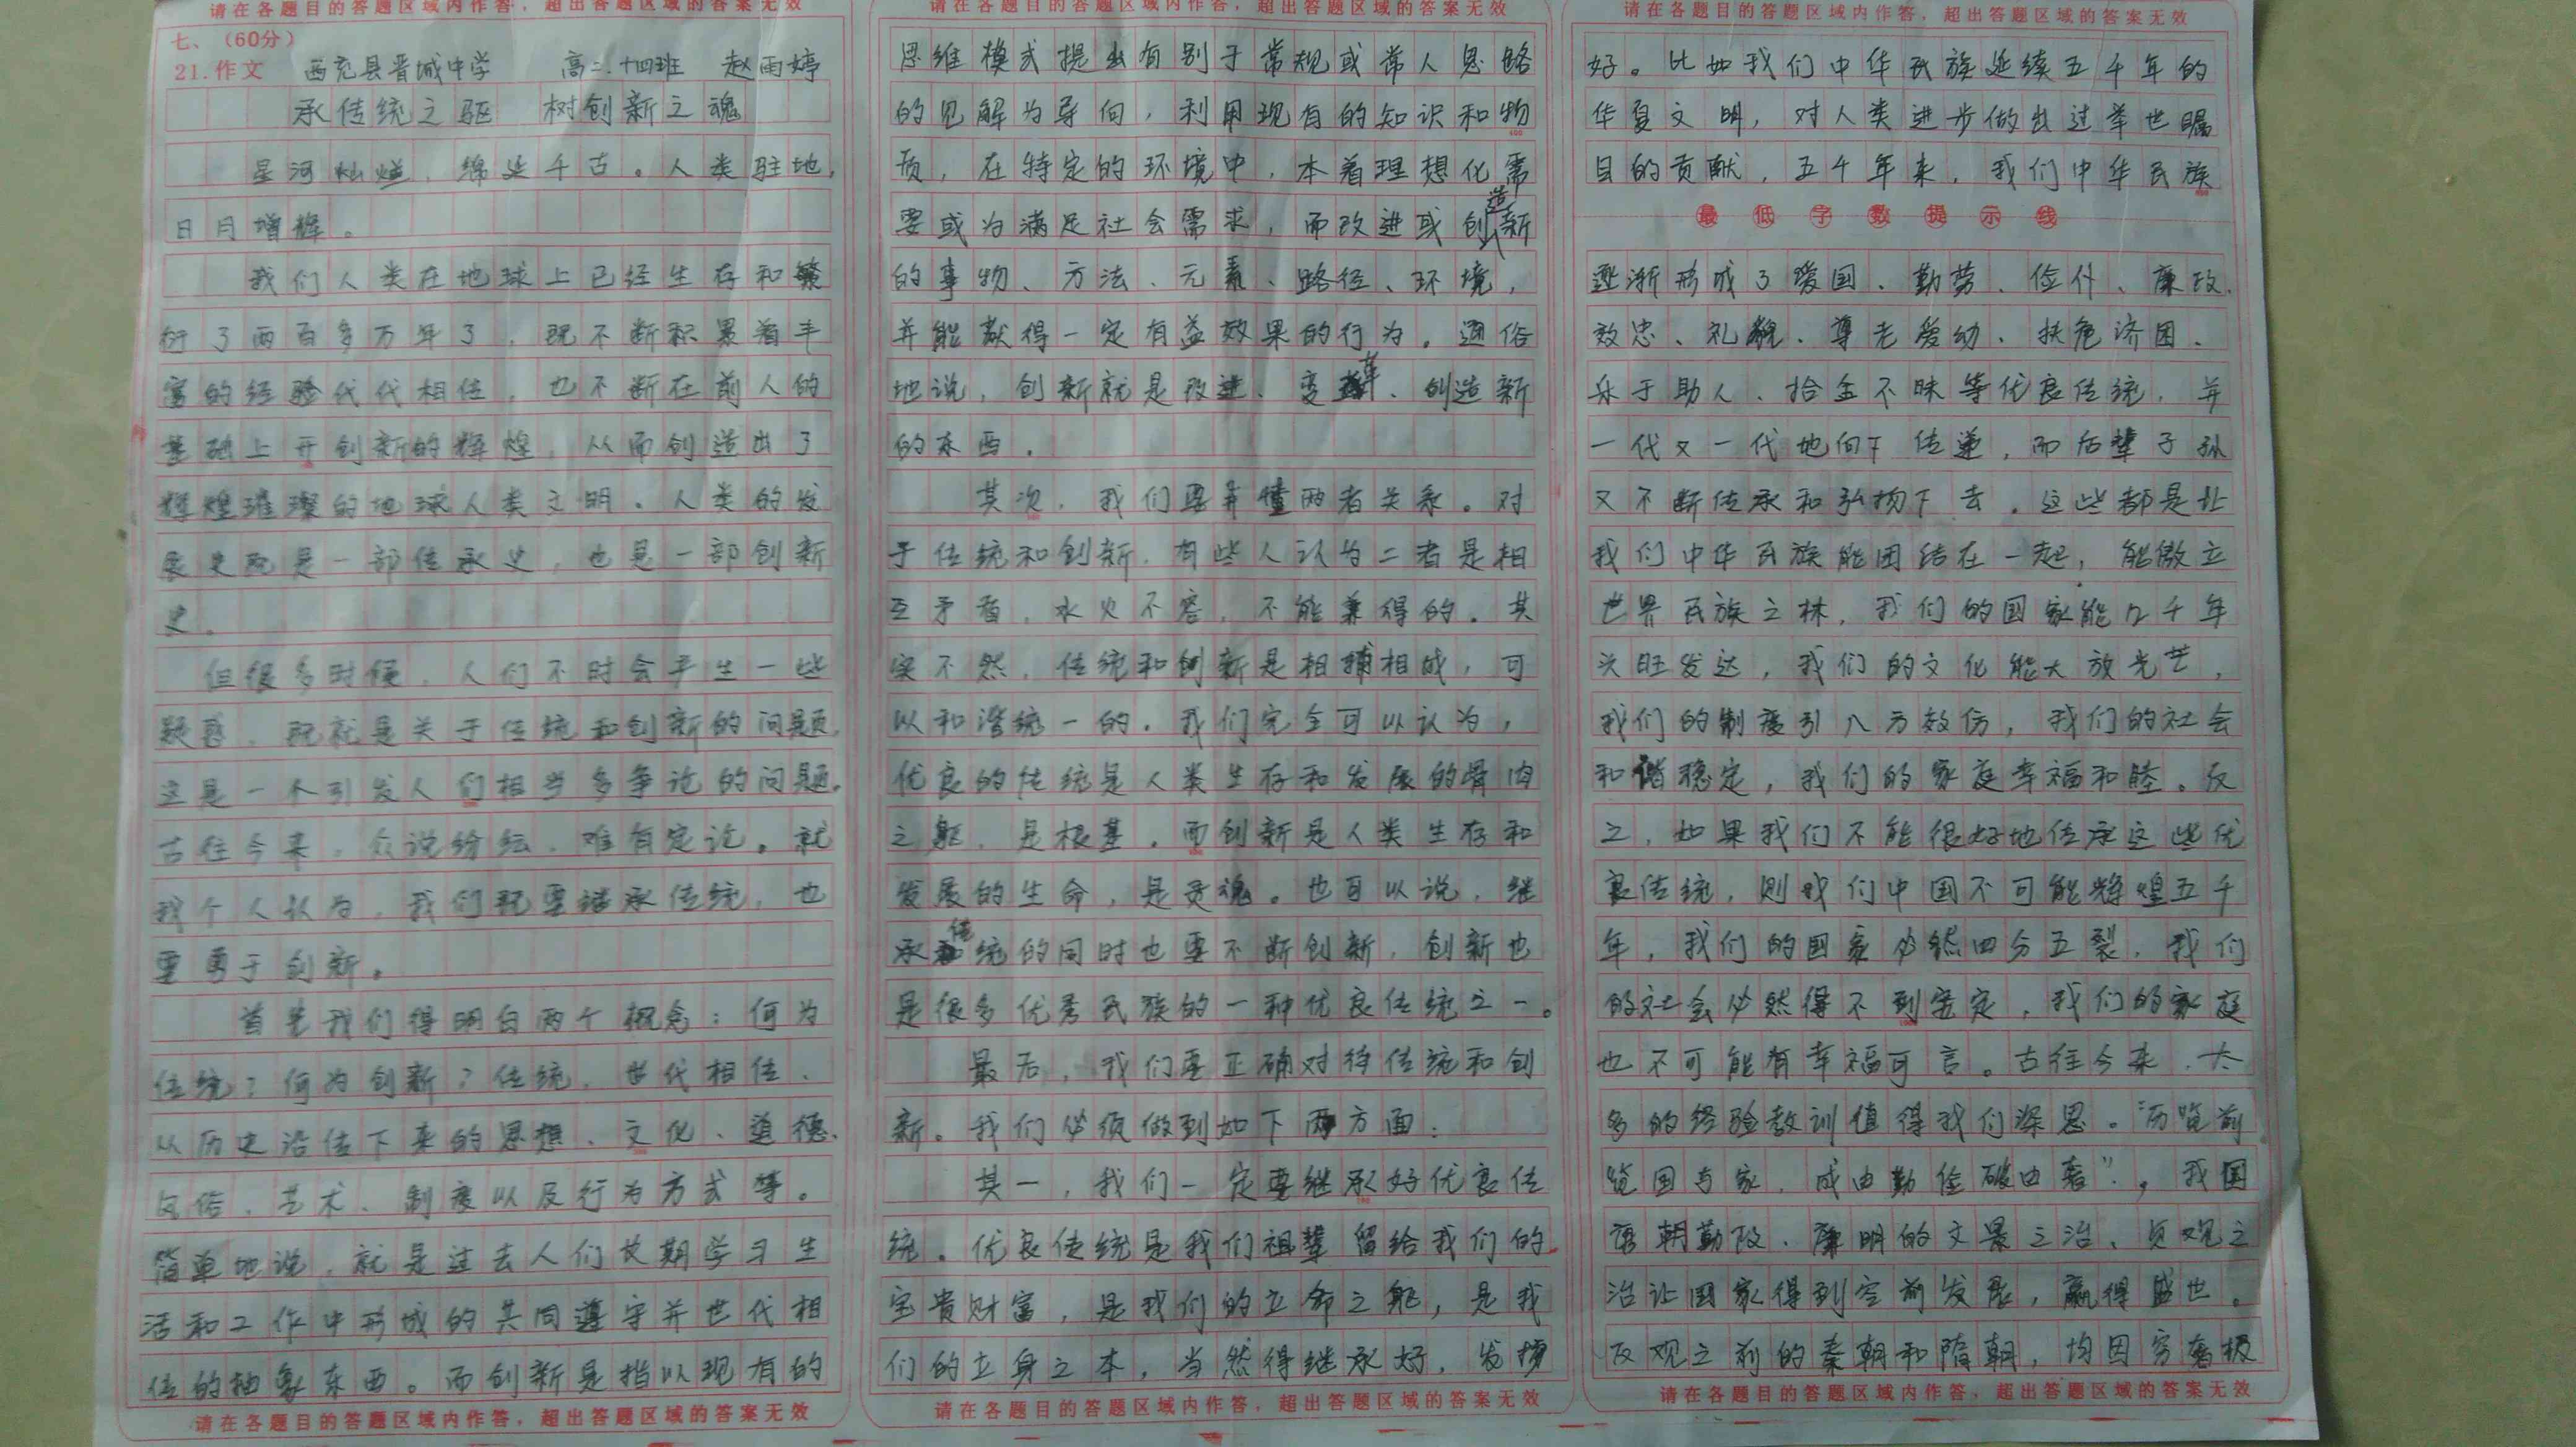 请在各题目的答题区域内作答，超出答题区域的答案无效
七、（60分）
21.作文 西充县晋城中学 高二.十四班 赵雨婷
承传统之驱 树创新之魂
星河灿烂，绵延千古。人类驻地，
日月增辉。
我们人类在地球上已经生存和繁
衍了两百多万年了，既不断积累着丰
富的经验代代相传，也不断在前人的
基础上开创新的辉煌，从而创造出了
辉煌璀璨的地球人类文明。人类的发
展史既是一部传承史，也是一部创新
史。
但很多时候，人们不时会产生一些
疑惑，那就是关于传统和创新的问题，
这是一个引发人们相当多争论的问题。
古往今来，众说纷纭，难有定论。就
我个人认为，我们既要继承传统，也
要勇于创新。
首先我们得明白两个概念：何为
传统？何为创新？传统，世代相传、
从历史沿传下来的思想、文化、道德、
风俗、艺术、制度以及行为方式等。
简单地说，就是过去人们长期学习生
活和工作中形成的共同遵守并世代相
传的抽象东西。而创新是指以现有的
请在各题目的答题区域内作答，超出答题区域的答案无效
请在各题目的答题区域内作答，超出答题区域的答案无效
思维模式提出有别于常规或常人思路
的见解为导向，利用现有的知识和物
质，在特定的环境中，本着理想化需
要或为满足社会需求，而改进或创造新
的事物、方法、元素、路径、环境，
并能获得一定有益效果的行为。通俗
地说，创新就是改进、变革、创造新
的东西。
其次，我们要弄懂两者关系。对
于传统和创新，有些人认为二者是相
互矛盾，水火不容，不能兼得的。其
实不然，传统和创新是相辅相成，可
以和谐统一的。我们完全可以认为，
优良的传统是人类生存和发展的骨肉
之躯，是根基。而创新是人类生存和
发展的生命，是灵魂。也可以说，继
承传统的同时也要不断创新，创新也
是很多优秀民族的一种优良传统之一。
最后，我们要正确对待传统和创
新。我们必须做到如下两方面：
其一，我们一定要继承好优良传
统。优良传统是我们祖辈留给我们的
宝贵财富，是我们的立命之躯，是我
们的立身之本，当然得继承好，发扬
请在各题目的答题区域内作答，超出答题区域的答案无效
请在各题目的答题区域内作答，超出答题区域的答案无效
好。比如我们中华民族延续五千年的
华夏文明，对人类进步做出过举世瞩
目的贡献，五千年来，我们中华民族
最低字数提示线
逐渐形成了爱国、勤劳、俭什、廉政、
效忠、礼貌、尊老爱幼、扶危济困、
乐于助人、拾金不昧等优良传统，并
一代又一代地向下传递，而后辈子孙
又不断传承和弘扬下去。这些都是让
我们中华民族能团结在一起，能傲立
世界民族之林，我们的国家能几千年
兴旺发达，我们的文化能大放光芒，
我们的制度引八方效仿，我们的社会
和谐稳定，我们的家庭幸福和睦。反
之，如果我们不能很好地传承这些优
良传统，则我们中国不可能辉煌五千
年，我们的国家必然四分五裂，我们
的社会必然得不到安定，我们的家庭
也不可能有幸福可言。古往今来，太
多的经验教训值得我们深思。“历览前
览国与家，成由勤俭破由奢”，我国
唐朝勤政、廉明的文景之治、贞观之
治让国家得到空前发展，赢得盛世。
反观之前的秦朝和隋朝，均因穷奢极
请在各题目的答题区域内作答，超出答题区域的答案无效